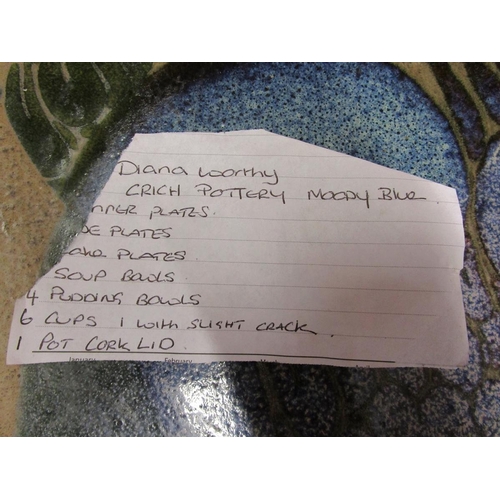 Diana Worthy
CRICH POTTERY MOODY BLUE.
NNER PLATES.
DE PLATES
PLATES.
SOUP BOWLS.
4 PUDDING BOWLS
6 CUPS 1 WITH SLIGHT CRACK.
1 POT CORK LID.
January February March